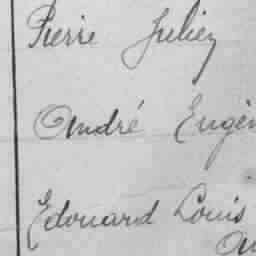 Pierre Julien
André Eugèn
Edouard Louis